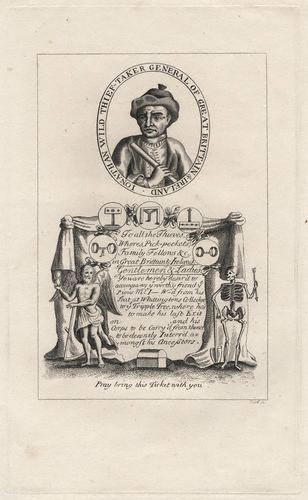 IONATHAN WILD THIEF-TAKER GENERAL OF GREAT BRITTAIN & IRELAND
To all the Thieves
Whores, Pick-pockets,
Family Fellons &c.
in Great Brittain & Ireland
Gentlemen & Ladies
You are hereby desir'd to
accompany yr worthy friend ye
Pious Mr. I— W—d from his
Seat at Whittingtons Colledge
to ye Tripple Tree, where he's
to make his last Exit
on and his
Corps to be Carry'd from thence
to be decently Interr'd a=
mongst his Ancestors.
Pray bring this Ticket with you